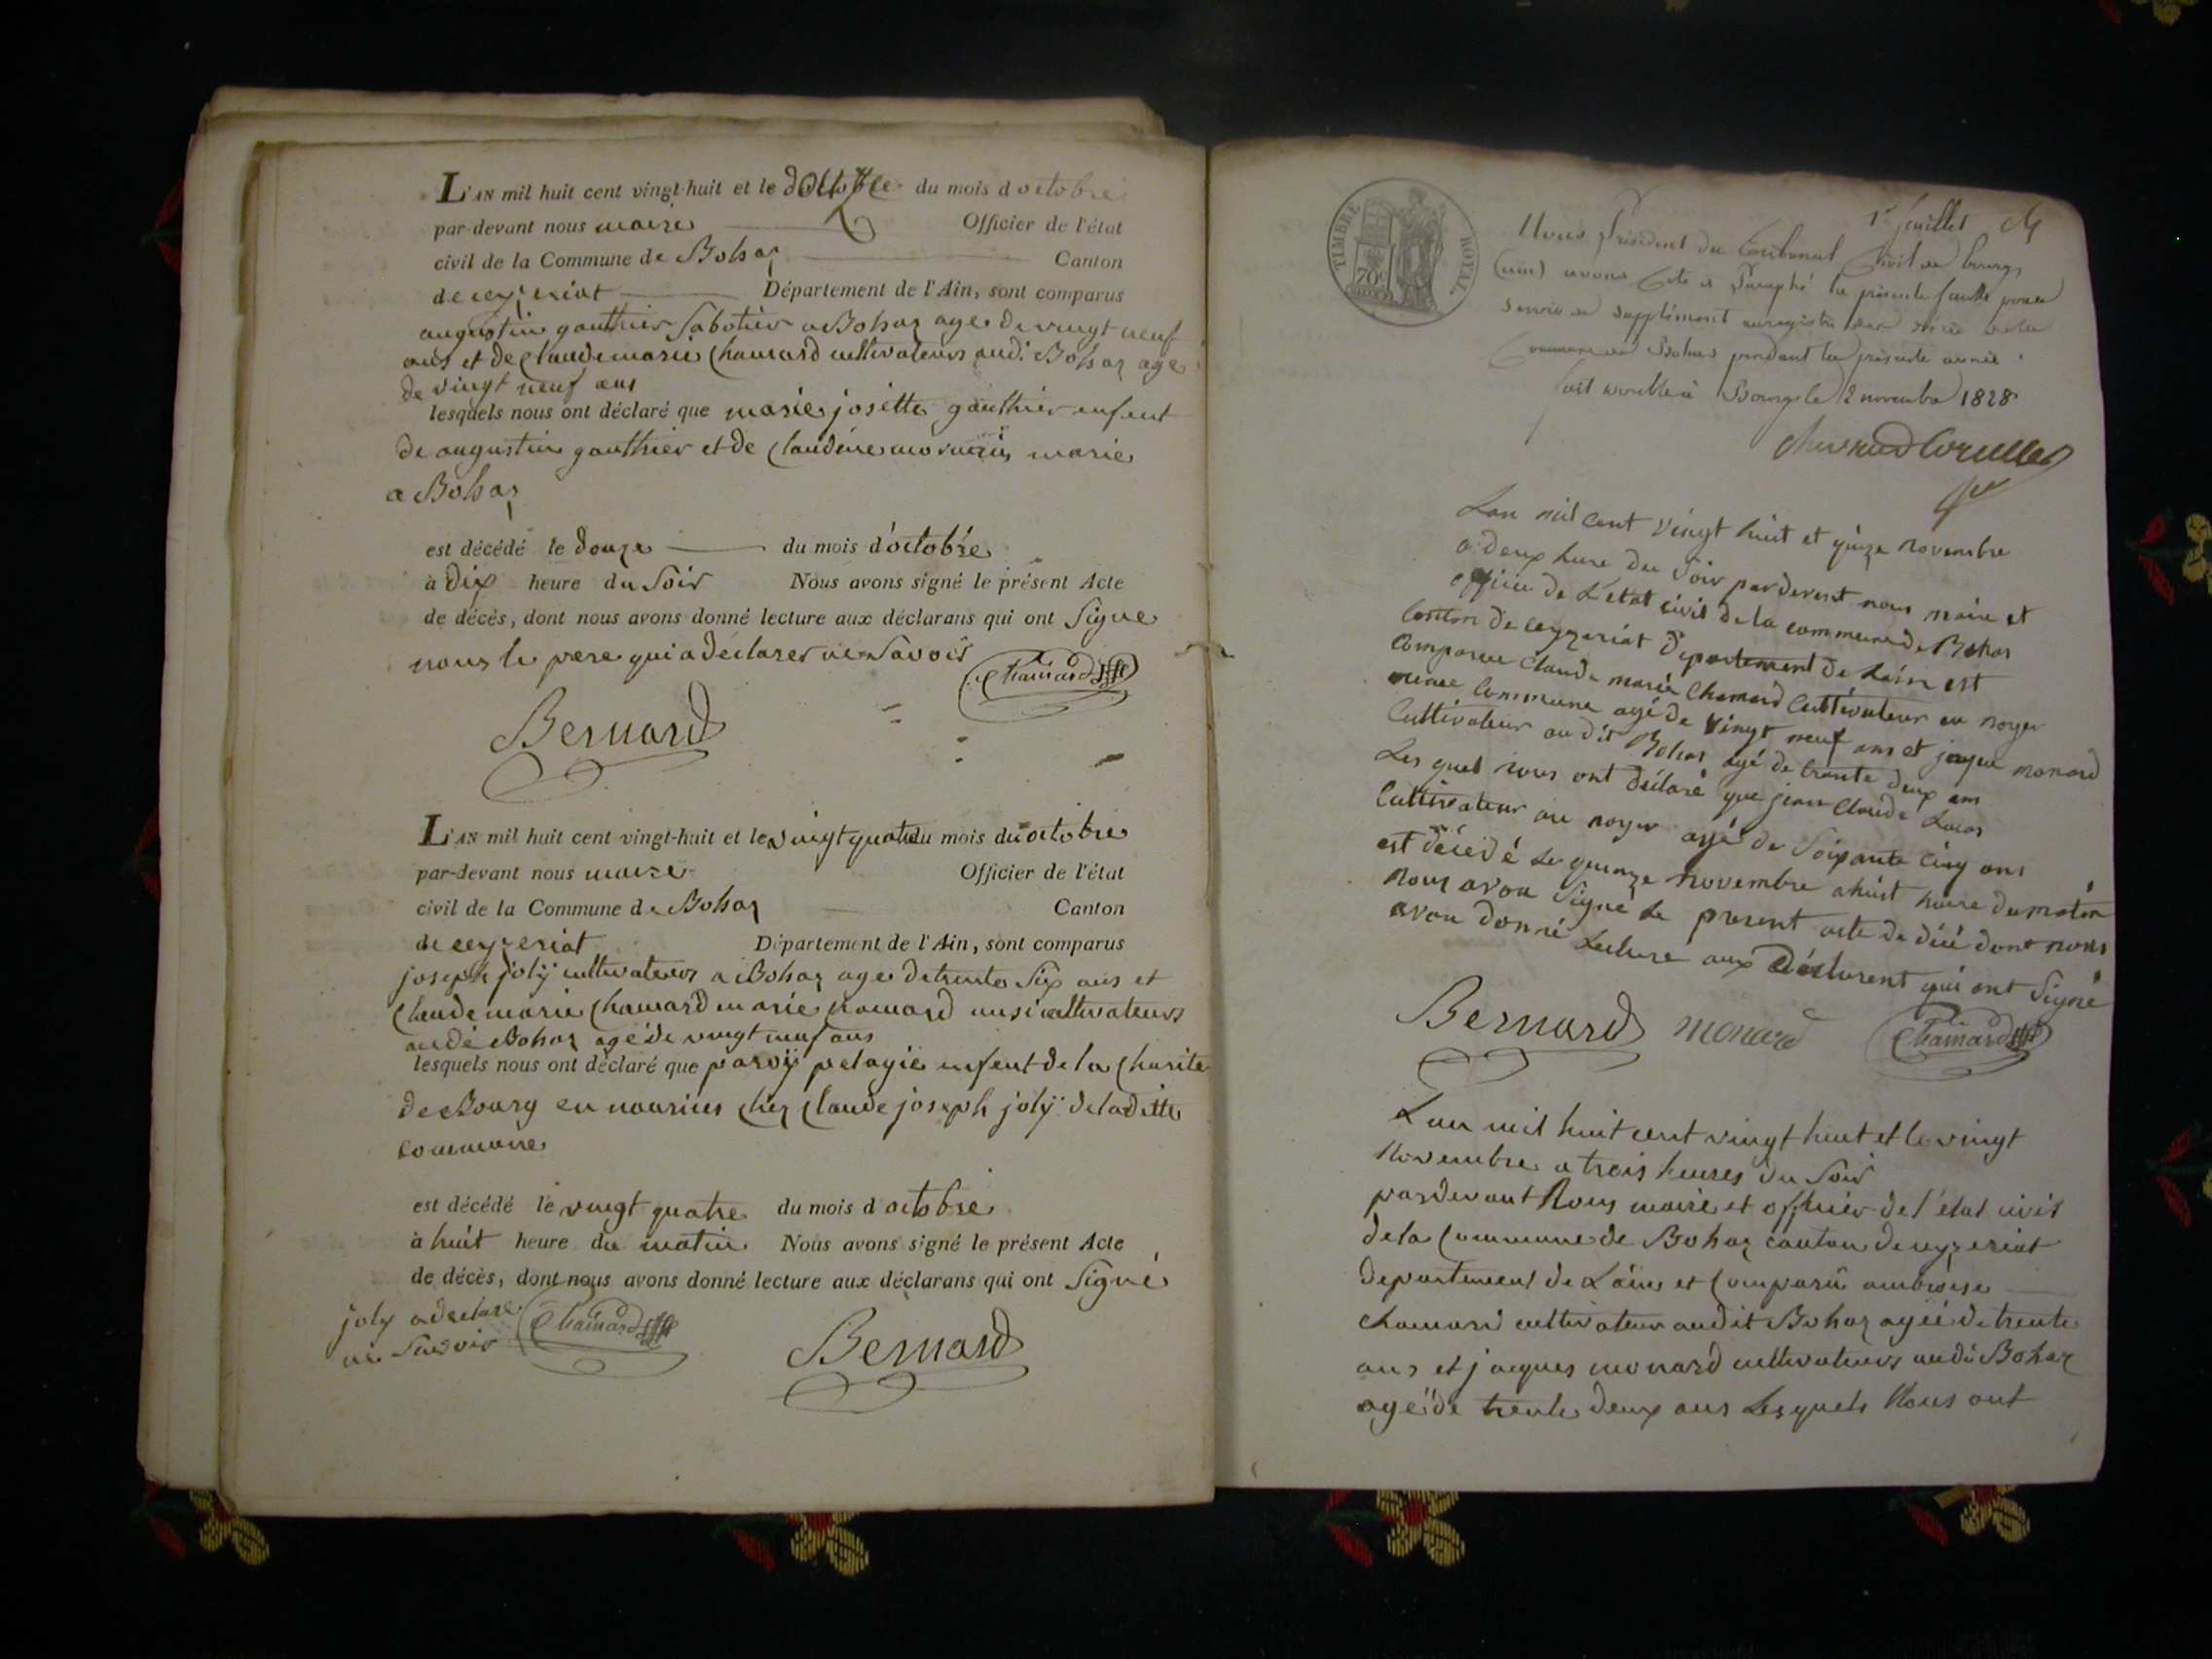 L'AN mil huit cent vingt-huit et le du mois d octobre
par-devant nous maire Officier de l'état
civil de la Commune de Bohaz Canton
de ceyzeriat Département de l'Ain, sont comparus
augustin gauthier Sabotier a Bohaz age de vingt neuf
ans et de Claude marie Chanard cultivateurs audi Bohaz age
de vingt neuf ans
lesquels nous ont déclaré que marie josette gauthier enfent
de augustin gauthier et de Claudine marie
a Bohaz
est décédé le douze du mois d'octobre
à dix heure du Soir Nous avons signé le présent Acte
de décès, dont nous avons donné lecture aux déclarans qui ont Signe
nous le pere qui a declarer ne Savoir
Chanard
Bernard
L'AN mil huit cent vingt-huit et le vingt quatre du mois du octobre
par-devant nous maire Officier de l'état
civil de la Commune de Bohaz Canton
de ceyzeriat Département de l'Ain, sont comparus
joseph joly cultivateurs a Bohaz age de trente Six ans et
Claude marie Chanard cultivateurs
audi Bohaz agé de vingt neuf ans
lesquels nous ont déclaré que pelagie enfent de la Charite
de Bourg en chez Claude joseph joly de la ditte
commune
est décédé le vingt quatre du mois d octobre
à huit heure du matin Nous avons signé le présent Acte
de décès, dont nous avons donné lecture aux déclarans qui ont Signé
joly a declare
ne Savoir Chanard
Bernard
TIMBRE ROYAL
70c
1er juillet
Nous Président du tribunal Civil de bourg
(ain) avons Coté et Paraphé la présente feuille pour
servir de supplément
commune de Bohas pendant la présente année.
fait à Bourg le 12 novembre 1828
Lan mil cent vingt huit et quize novembre
a deux hure du Soir par devent nous maire et
officie de L'etat civil de la commune de Bohas
Conton de ceyzeriat Département de Lain est
Comparu Claude marie Chanard Cultivateur au noyer
même Commune agé de Vingt neuf ans et jaque monard
Cultivateur au dit Bohas agé de trante deux ans
Les quel nous ont déclaré que jean Claude Lucas
Cultivateur au noyer agé de Soixante cinq ans
est décédé Le quinze novembre a huit hure du matin
nous avon Signé Le present acte de décé dont nous
avon donné Lecture aux Déclarent qui ont Signé
Bernard monard Chanard
Lan mil huit cent vingt huit et le vingt
Novembre a trois heures du Soir
pardevant Nous maire et officier de l'état civil
de la Commune de Bohaz canton de ceyzeriat
departement de Lain et Comparu ambroise
Chanard cultivateur audit Bohaz agé de trente
ans et jacques monard cultivateurs audi Bohaz
agé de trente deux ans Lesquels Nous ont